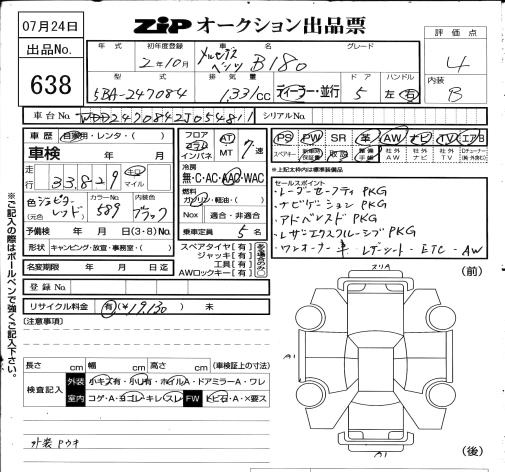 07月24日
出品No.
638
ZIP オークション出品票
評価点
4
内装
B
年式
初年度登録
車名
グレード
2年10月
メルセデスベンツ B180
型式
排気量
ドア
ハンドル
5BA-247084
1,331cc
ディーラー・並行
5
左・右
車台No.
シリアルNo.
車歴
自家用・レンタ・( )
車検
年 月
走行
33,829
km マイル
色(元色)
ジュピターレッド
カラーNo.
589
内装色
ブラック
予備検
年 月 日(3・8)No.
形状
キャンピング・放宣・事務室・( )
フロア コラム インパネ
AT・MT
7速
冷房装備
無・C・AC・AAC・WAC
燃料
ガソリン・軽油・( )
Nox
適合・非適合
乗車定員
5名
PS
PW
SR
革
AW
ナビ
TV
エアB
スペアキー
新車時保証書
取説
整備手帳
社外AW
社外ナビ
社外TV
※上記太枠内は標準装備
セールスポイント
レーダーセーフティPKG
ナビゲーションPKG
アドバンスドPKG
レザーエクスクルーシブPKG
ワンオーナー車 レザーシート・ETC・AW
名変期限 年 月 日迄
スペアタイヤ[有]
ジャッキ[有]
工具[有]
AWロックキー[有]
ある場合のみ○
登録No.
リサイクル料金
有(¥19,130) 未
(注意事項)
長さ cm
幅 cm
高さ cm
(車検証上の寸法)
検査記入
外装
小キズ有・小U有・ホイルA・ドアミラーA・ワレ
室内
コゲ・A・ヨゴレ・キレ・スレ
FW
トビ石・A・X要ス
外装Pウキ
※ご記入の際はボールペンで強くご記入下さい。
(前)
(後)
A1
A1